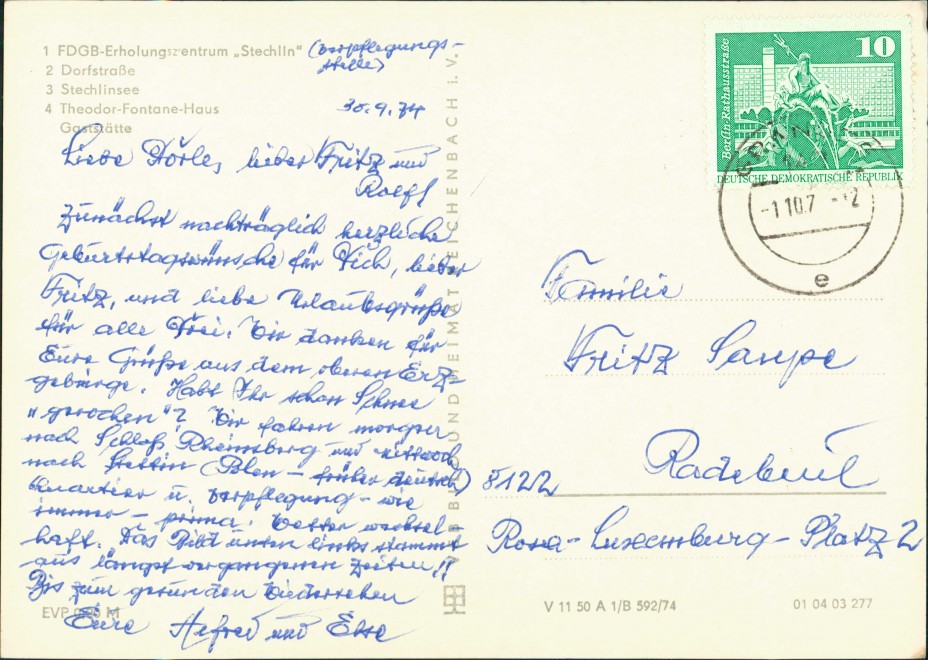 1 FDGB-Erholungszentrum „Stechlin" (Verpflegungs-
stelle)
2 Dorfstraße
3 Stechlinsee
4 Theodor-Fontane-Haus
Gaststätte
30.9.74
Liebe Dörle, lieber Fritz und
Rolf!
Zunächst nachträglich herzliche
Geburtstagswünsche für Dich, lieber
Fritz, und liebe Urlaubsgrüße
für alle Drei. Wir danken für
Eure Grüße aus dem oberen Erz-
gebirge. Habt Ihr schon Schnee
„gerochen"? Wir fahren morgen
nach Schloß Rheinsberg und mittwoch
nach Stettin (Polen – früher deutsch)
Quartier u. Verpflegung – wie
immer – prima. Wetter wechsel-
haft. Das Bild unten links stammt
aus längst vergangenen Zeiten!!
Bis zum gesunden Wiedersehen
Eure Alfred und Else
EVP 0,20 M
VEB BILD UND HEIMAT REICHENBACH i. V.
10
Berlin Rathausstraße
DEUTSCHE DEMOKRATISCHE REPUBLIK
-1.10.7 -12
e
Familie
Fritz Saupe
Radebeul
8122
Rosa-Luxemburg-Platz 2
V 11 50 A 1/B 592/74
01 04 03 277